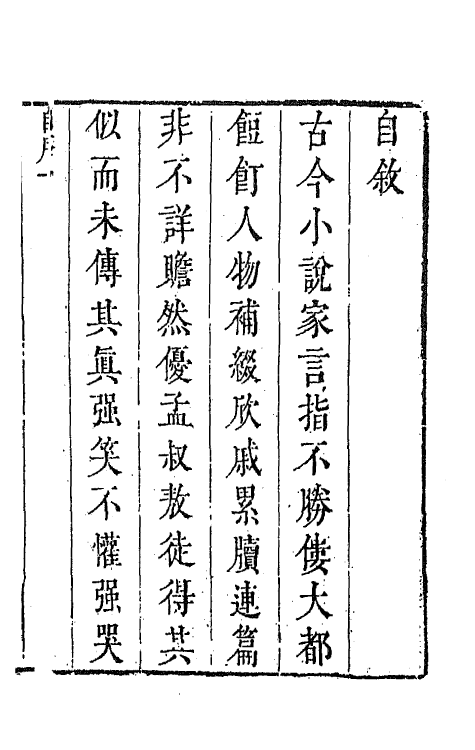 自敘
古今小說家言指不勝僂大都
飽飣人物補綴欣戚累牘連篇
非不詳贍然優孟叔敖徒得其
似而未傳其眞强笑不懽强哭
自序一